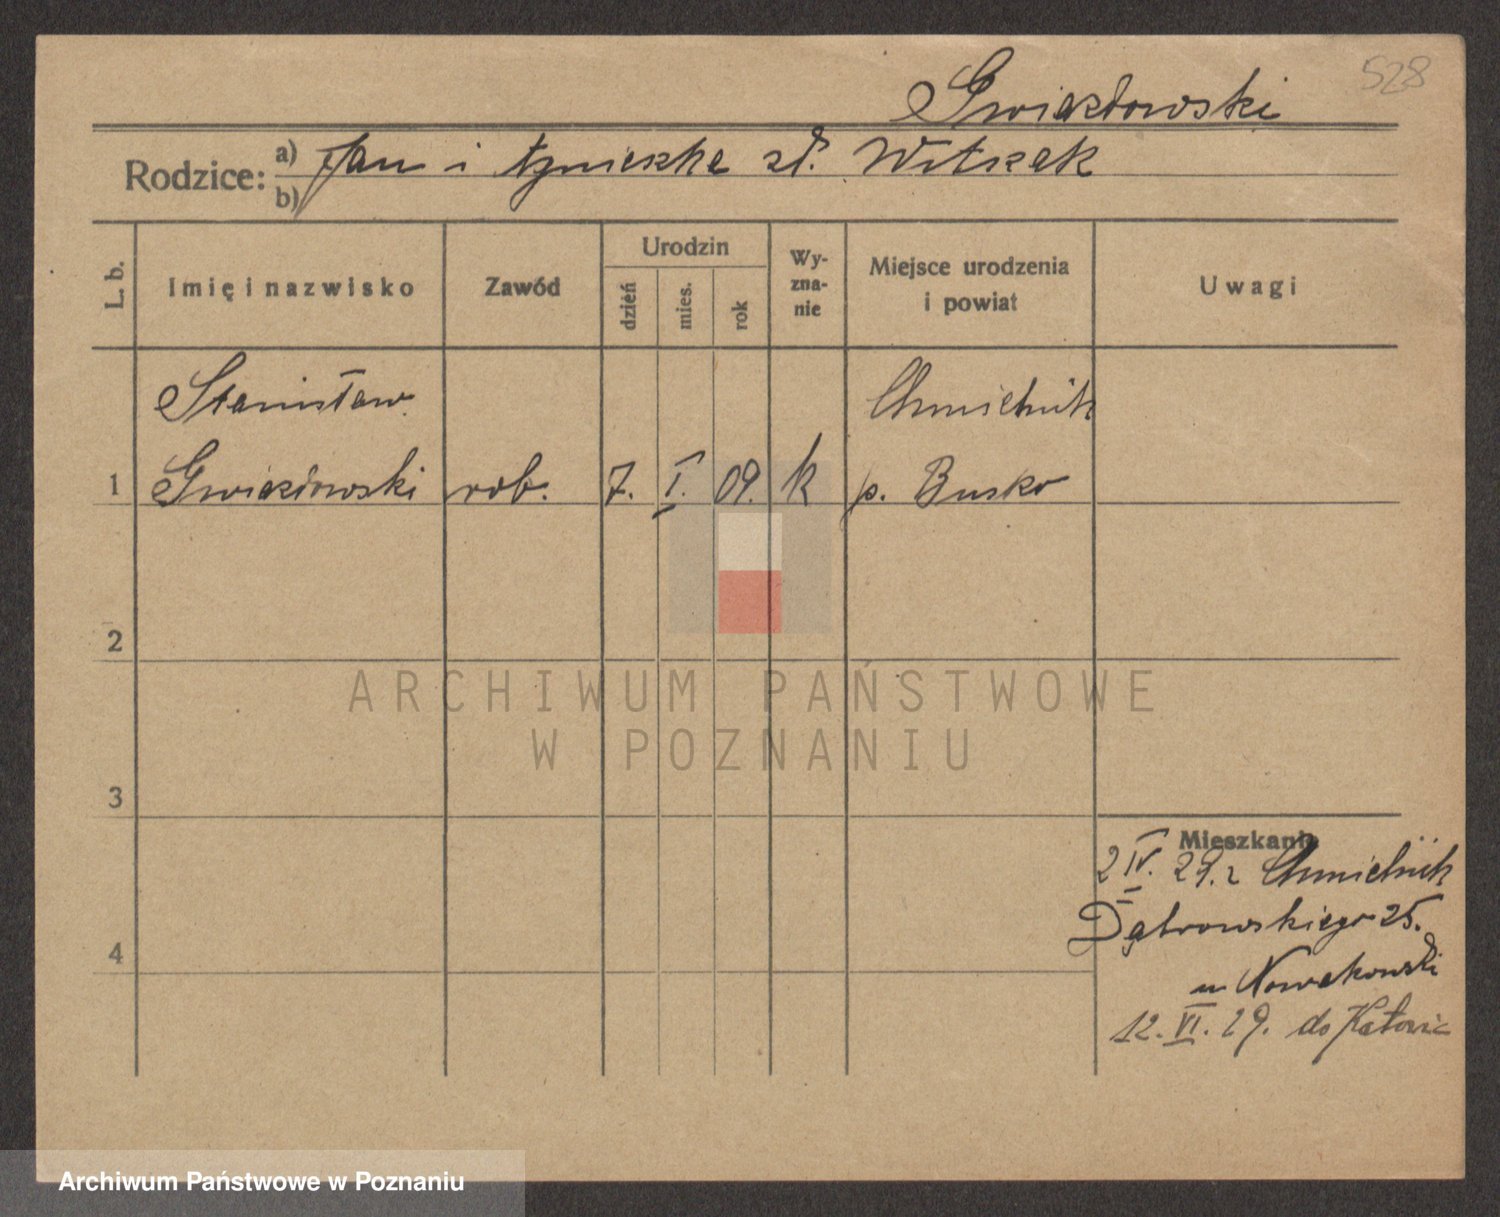 528
Gwiazdowski
Rodzice: a) Jan i Agnieszka zd. Witczak
b)
L. b.
Imię i nazwisko
Zawód
Urodzin
dzień
mies.
rok
Wy-
zna-
nie
Miejsce urodzenia
i powiat
Uwagi
Stanisław Chmielnik
1 Gwiazdowski rob. 7. I. 09. k p. Busko
2
ARCHIWUM PAŃSTWOWE
W POZNANIU
3
Mieszkanie
2 IV. 29. z Chmielnik
4 Dąbrowskiego 25.
u Nowakowski
12. VI. 29. do Katowic
Archiwum Państwowe w Poznaniu